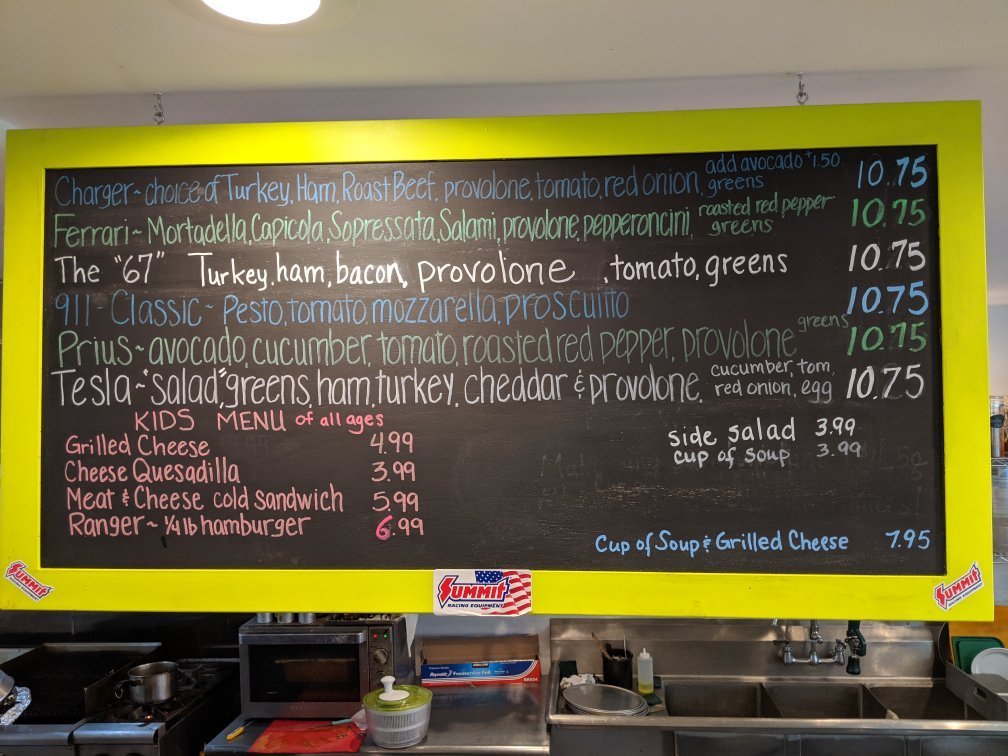 Charger~ choice of Turkey, Ham, Roast Beef, provolone, tomato, red onion, add avocado +1.50 greens 10.75
Ferrari~ Mortadella, Capicola, Sopressata, Salami, provolone, pepperoncini, roasted red pepper greens 10.75
The "67" Turkey, ham, bacon, provolone, tomato, greens 10.75
911- Classic~ Pesto, tomato, mozzarella, proscuitto 10.75
Prius~ avocado, cucumber, tomato, roasted red pepper, provolone greens 10.75
Tesla~ "salad" greens, ham, turkey, cheddar & provolone, cucumber, tom, red onion, egg 10.75
KIDS MENU of all ages
Grilled Cheese 4.99
Cheese Quesadilla 3.99
Meat & Cheese cold sandwich 5.99
Ranger~ 1/4 lb hamburger 6.99
side salad 3.99
cup of soup 3.99
Cup of Soup & Grilled Cheese 7.95
SUMMIT
SUMMIT
RACING EQUIPMENT
SUMMIT
Reynolds Foodservice Foil